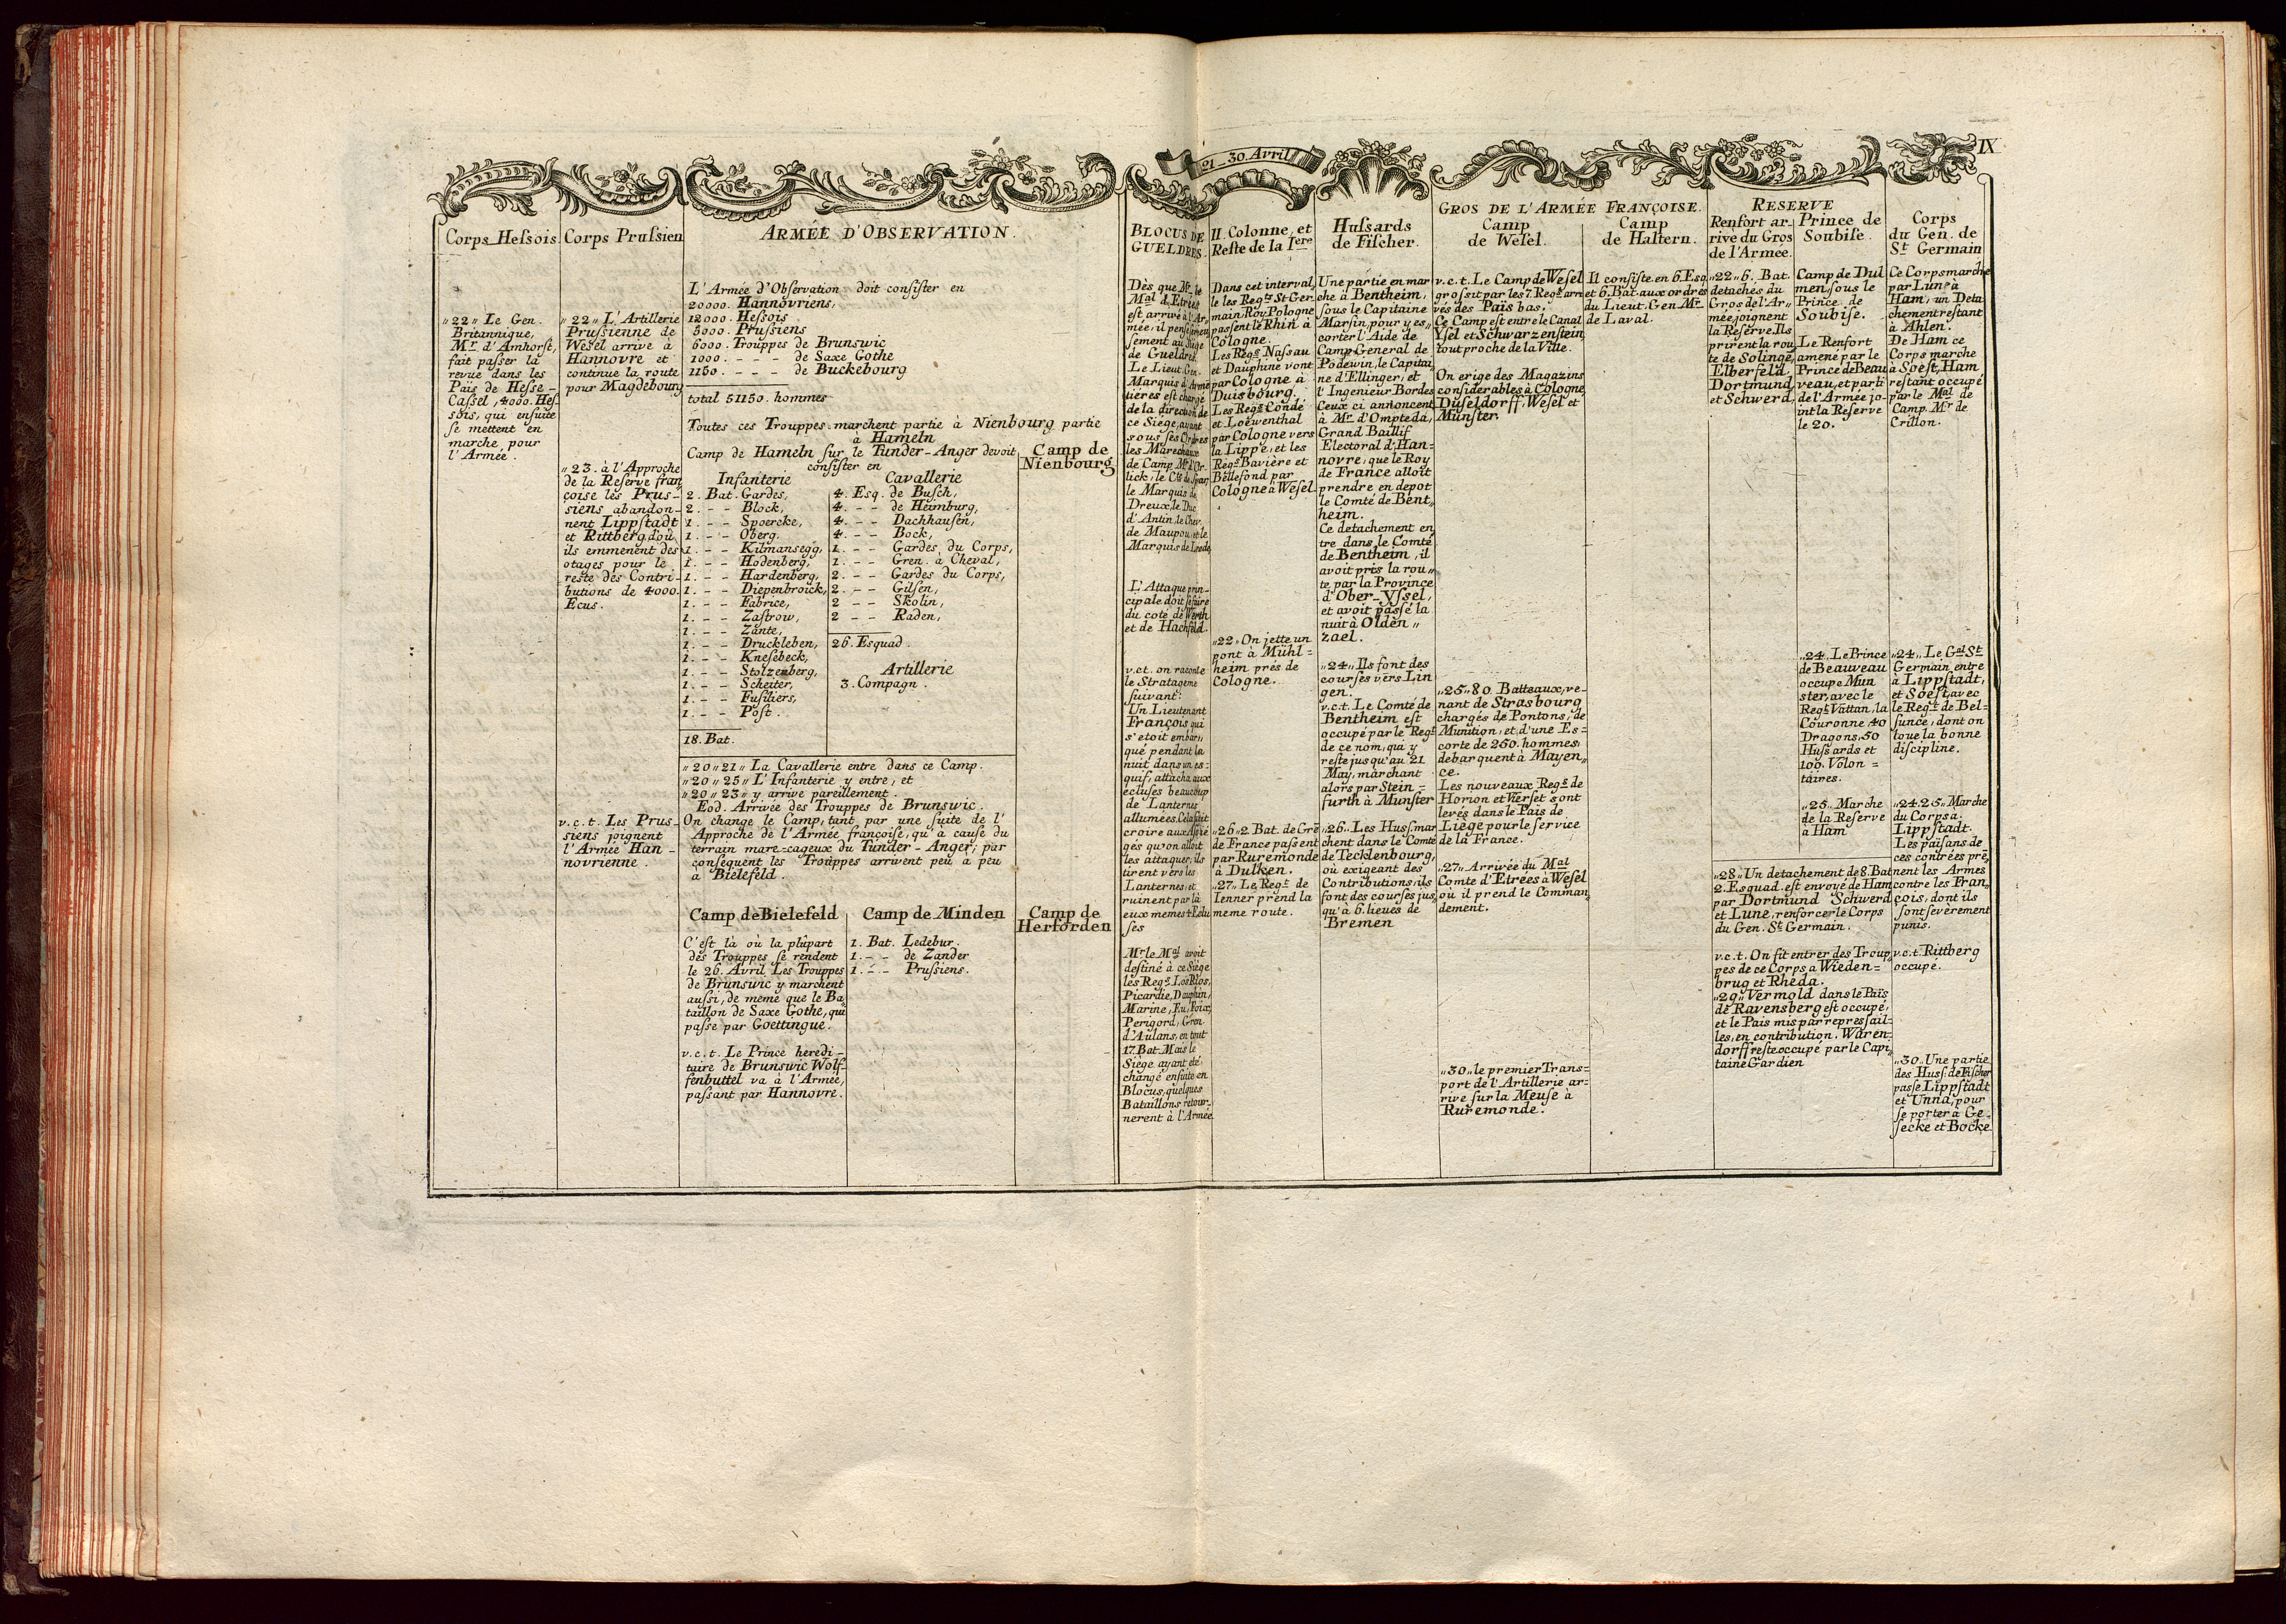 IX
21 - 30. Avril
Corps Hessois
„22„ Le Gen.
Britannique,
Mr. d'Amhorst,
fait passer la
revue dans les
Pais de Hesse-
Cassel, 4000. Hes-
sois, qui ensuite
se mettent en
marche pour
l'Armée.
Corps Prussien
„22„ L'Artillerie
Prussienne de
Wesel arrive à
Hannovre et
continue la route
pour Magdebourg
„23. à l'Approche
de la Reserve fran
çoise les Prus-
siens abandon-
nent Lippstadt
et Rittberg, d'où
ils emmenent des
otages pour le
reste des Contri-
butions de 4000.
Ecus.
v.c.t. Les Prus-
siens joignent
l'Armée Han-
novrienne.
ARMEE D'OBSERVATION.
L'Armée d'Observation doit consister en
20000. Hannovriens,
12000. Hessois
5000. Prussiens
6000. Trouppes de Brunswic
1000. - - - de Saxe Gothe
1150. - - - de Buckebourg
total 51150. hommes
Toutes ces Trouppes marchent partie à Nienbourg partie
à Hameln
Camp de Hameln sur le Tunder-Anger devoit
consister en
Camp de
Nienbourg
Infanterie
2. Bat. Gardes,
2. - - Block,
1. - - Spoercke,
1. - - Oberg.
1. - - Kilmansegg,
1. - - Hodenberg,
1. - - Hardenberg,
1. - - Diepenbroick,
1. - - Fabrice,
1. - - Zastrow,
1. - - Zante,
1. - - Druckleben,
1. - - Knesebeck,
1. - - Stolzenberg,
1. - - Scheiter,
1. - - Fusiliers,
1. - - Post.
18. Bat.
Cavallerie
4. Esq. de Busch,
4. - - de Heimburg,
4. - - Dachhausen,
4. - - Bock,
1. - - Gardes du Corps,
1. - - Gren. à Cheval,
2. - - Gardes du Corps,
2. - - Gilsen,
2 - - Skolin,
2 - - Raden,
26. Esquad.
Artillerie
3. Compagn.
„20„21„ La Cavallerie entre dans ce Camp.
„20„25„ L'Infanterie y entre, et
„20„23„ y arrive pareillement.
Eod. Arrivée des Trouppes de Brunswic.
On change le Camp, tant par une suite de l'
Approche de l'Armée françoise, qu'à cause du
terrain mare-cageux du Tunder-Anger; par
consequent les Trouppes arrivent peu à peu
à Bielefeld.
Camp de Bielefeld
C'est là où la plûpart
des Trouppes se rendent
le 26. Avril Les Trouppes
de Brunswic y marchent
aussi, de meme que le Ba
taillon de Saxe Gothe, qui
passe par Goettingue.
v.c.t. Le Prince heredi-
taire de Brunswic Wolf-
fenbuttel va à l'Armée,
passant par Hannovre.
Camp de Minden
1. Bat. Ledebur.
1. - - de Zander
1. - - Prussiens.
Camp de
Herforden
BLOCUS DE
GUELDRES.
Dès que Mr. le
Mal d'Etrées
est arrivé à l'Ar„
mée, il pense serieu
sement au Siege
de Gueldres.
Le Lieut. Gen.
Marquis d'Armen
tieres est chargé
de la direction de
ce Siège, ayant
sous ses Ordres
les Marechaux
de Camp Mr. d'Or
lick, le Cte de Spar,
le Marquis de
Dreux, le Duc
d'Antin, le Chev.
de Maupou, et le
Marquis de Leede
L'Attaque prin-
cipale doit se faire
du coté de Werth
et de Hachfeld.
v.c.t. on raconte
le Stratageme
suivant:
Un Lieutenant
François qui
s'etoit embar„
qué pendant la
nuit dans un es-
quif, attache aux
ecluses beaucoup
de Lanternes
allumées. Cela fait
croire aux Assie
gés qu'on alloit
les attaquer; ils
tirent vers les
Lanternes et
ruinent par là
eux memes l'Eclu
ses
Mr le Mal avoit
destiné à ce Siège
les Regts Los Rios,
Picardie, Dauphin,
Marine, Eu, Foix,
Perigord, Gren.
d'Aulans, en tout
17. Bat. Mais le
Siège ayant eté
changé ensuite en
Blocus, quelques
Bataillons retour-
nerent à l'Armée
II. Colonne, et
Reste de la Iere
Dans cet interval„
le les Regts St Ger
main, Roy. Pologne
passent le Rhin à
Cologne.
Les Regts Nassau
et Dauphine vont
par Cologne à
Duisbourg.
Les Regts Condé
et Loewenthal
par Cologne vers
la Lippe, et les
Regts Bavière et
Bellefond par
Cologne à Wesel.
„22„ On jette un
pont à Mühl=
heim prés de
Cologne.
„26„2. Bat. de Gre
de France passent
par Ruremonde
à Dulken.
„27„ Le Regt. de
Ienner prend la
meme route.
Hussards
de Fischer.
Une partie en mar
che à Bentheim,
sous le Capitaine
Marsin, pour y es„
corter l'Aide de
Camp General de
Podewin, le Capitai„
ne d'Ellinger, et
l'Ingenieur Bordes
Ceux ci annoncent
à Mr. d'Ompteda,
Grand Baillif
Electoral d'Han=
novre, que le Roy
de France alloit
prendre en depot
le Comté de Bent„
heim.
Ce detachement en
tre dans le Comté
de Bentheim, il
avoit pris la rou„
te par la Province
d'Ober-Yssel,
et avoit passé la
nuit à Olden„
zael.
„24„ Ils font des
courses vers Lin
gen.
v.c.t. Le Comté de
Bentheim est
occupé par le Regt
de ce nom, qui y
reste jusqu'au 21
May, marchant
alors par Stein=
furth à Munster
„26„ Les Huss. mar
chent dans le Comté
de Tecklenbourg,
où exigeant des
Contributions, ils
font des courses jus„
qu'à 6. lieues de
Bremen
GROS DE L'ARMÉE FRANÇOISE.
Camp
de Wesel.
v.c.t. Le Camp de Wesel
grossit par les 7. Regts arri
vés des Païs bas.
Ce Camp est entre le Canal
Ysel et Schwarzenstein,
tout proche de la Ville.
On erige des Magazins
considerables à Cologne,
Düseldorff, Wesel et
Münster.
„25„80. Batteaux, ve-
nant de Strasbourg
chargés de Pontons, de
Munition, et d'une Es=
corte de 250. hommes,
debarquent à Mayen„
ce.
Les nouveaux Regts de
Horion et Vierset sont
levés dans le Païs de
Liège pour le service
de la France.
„27„ Arrivée du Mal
Comte d'Etrées à Wesel
où il prend le Comman„
dement.
„30„ le premier Trans=
port de l'Artillerie ar=
rive sur la Meuse à
Ruremonde.
Camp
de Haltern.
Il consiste en 6. Esq.
et 6. Bat. aux ordres
du Lieut. Gen. Mr.
de Laval.
RESERVE
Renfort ar-
rivé du Gros
de l'Armée.
„22„6. Bat.
detachés du
Gros de l'Ar„
mée, joignent
la Reserve. Ils
prirent la rou„
te de Solinge,
Elberfeld,
Dortmund,
et Schwerd,
Prince de
Soubise.
Camp de Dul
men, sous le
Prince de
Soubise.
Le Renfort
amené par le
Prince de Beau
veau, et parti
de l'Armée jo-
int la Reserve
le 20.
„24„ Le Prince
de Beauveau
occupe Mun
ster, avec le
Regt Vattan, la
Couronne, 40
Dragons, 50
Hussards et
100. Volon=
taires.
„25„ Marche
de la Reserve
à Ham
„28„ Un detachement de 8. Bat
2. Esquad. est envoyé de Ham
par Dortmund Schwerd
et Lune, renforcer le Corps
du Gen. St Germain.
v.c.t. On fit entrer des Troup„
pes de ce Corps à Wieden=
brug et Rheda.
„29„ Vermold dans le Païs
de Ravensberg est occupé,
et le Païs mis par repressail-
les, en contribution. Waren-
dorff reste occupé par le Capi„
taine Gardien
Corps
du Gen. de
St Germain
Ce Corps marche
par Lune à
Ham, un Deta
chement restant
à Ahlen.
De Ham ce
Corps marche
à Soest, Ham
restant occupé
par le Mal de
Camp. Mr de
Crillon.
„24„ Le Gal St
Germain entre
à Lippstadt,
et Soest, avec
le Regt de Bel=
sunce, dont on
loue la bonne
discipline.
„24.25„ Marche
du Corps a
Lippstadt.
Les païsans de
ces contrées pre„
nent les Armes
contre les Fran„
çois, dont ils
sont severement
punis.
v.c.t. Rittberg
occupé.
„30„ Une partie
des Huss. de Fischer
passe Lippstadt
et Unna, pour
se porter à Ge-
secke et Bocke.